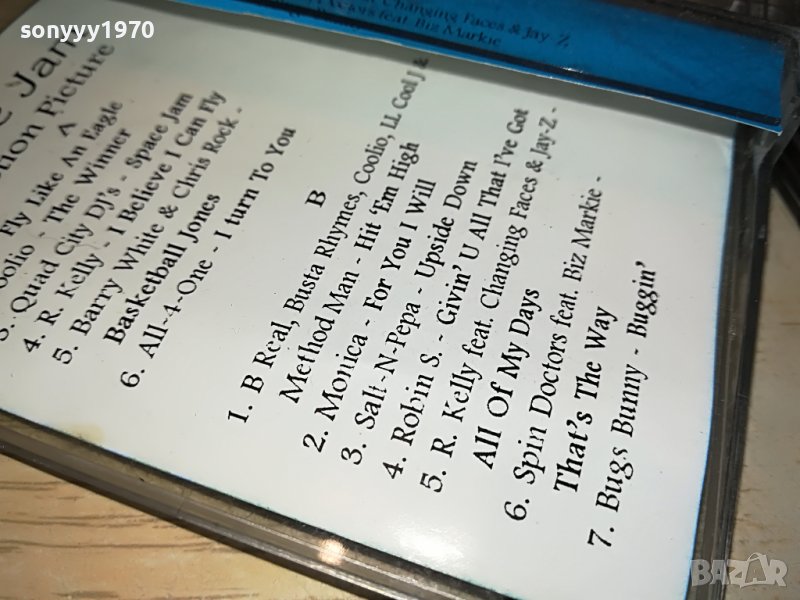 sonyyy1970
Changing Faces & Jay-Z
feat. Biz Markie
Jam
Picture
A
Fly Like An Eagle
- The Winner
3. Quad City DJ's - Space Jam
4. R. Kelly - I Believe I Can Fly
5. Barry White & Chris Rock -
Basketball Jones
6. All-4-One - I turn To You
B
1. B Real, Busta Rhymes, Coolio, LL Cool J &
Method Man - Hit 'Em High
2. Monica - For You I Will
3. Salt-N-Pepa - Upside Down
4. Robin S. - Givin' U All That I've Got
5. R. Kelly feat. Changing Faces & Jay-Z -
All Of My Days
6. Spin Doctors feat. Biz Markie -
That's The Way
7. Bugs Bunny - Buggin'
BAZAR